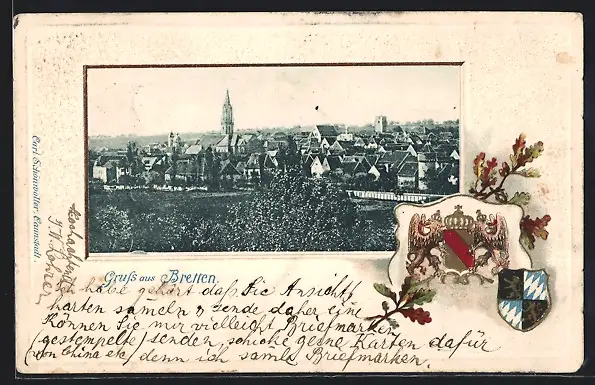 Gruß aus Bretten.
Carl Schönwolter, Cannstadt.
Ich habe gehört daß Sie Ansichts
karten sameln & sende daher eine
Können Sie mir vielleicht Briefmarken
(gestempelte) senden, schicke gerne Karten dafür
(von China etc) denn ich samle Briefmarken.